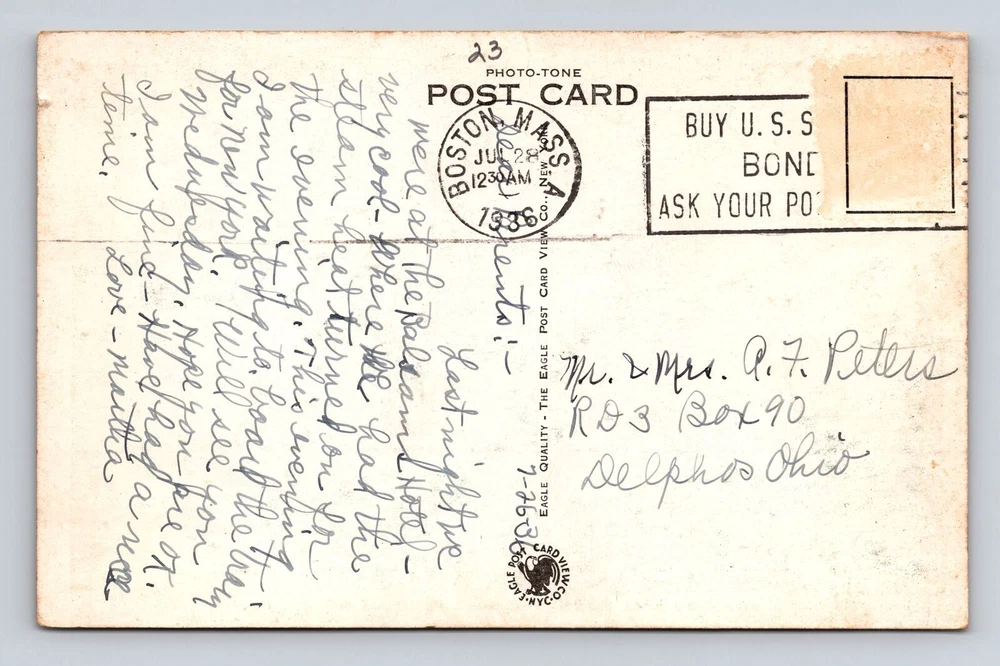 23
PHOTO-TONE
POST CARD
BOSTON, MASS. A
JUL 28
12 30 AM
1936
BUY U.S. S
BOND
ASK YOUR PO
7-26-36
Dear Parents:-
Last night we
were at the Balsams Hotel-
very cool- where we had the
steam heat turned on for
the evening. This evening
I am waiting to board the way
for New York. Will see you
Wednesday. Hope you are ok.
I am fine- Have had a nice
time. Love- Martha
EAGLE QUALITY - THE EAGLE POST CARD VIEW CO., NEW YORK
EAGLE POST CARD VIEW CO. N.Y.
Mr. & Mrs. A. F. Peters
RD3 Box 90
Delphos Ohio